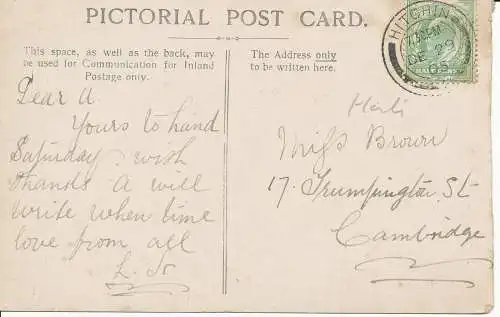 PICTORIAL POST CARD.
This space, as well as the back, may
be used for Communication for Inland
Postage only.
The Address only
to be written here.
HITCHIN
DE 29
HALFPENNY
Dear A.
Yours to hand
Saturday. with
thanks A will
write when time
love from all
Herts
Miss Brown
17. Trumpington St
Cambridge